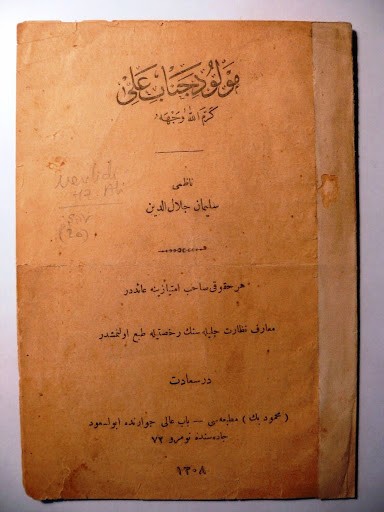 مولود جناب علی
كرم الله وجهه
ناظمی
سلیمان جلال الدین
هر حقوقی صاحب امتیازینه عائددر
معارف نظارت جلیله سنك رخصتیله طبع اولنمشدر
در سعادت
( محمود بك ) مطبعه سی — باب عالی جوارنده ابو السعود
جاده سنده نومرو ٧٢
١٣٠٨
Mevlidi
Hz Ali